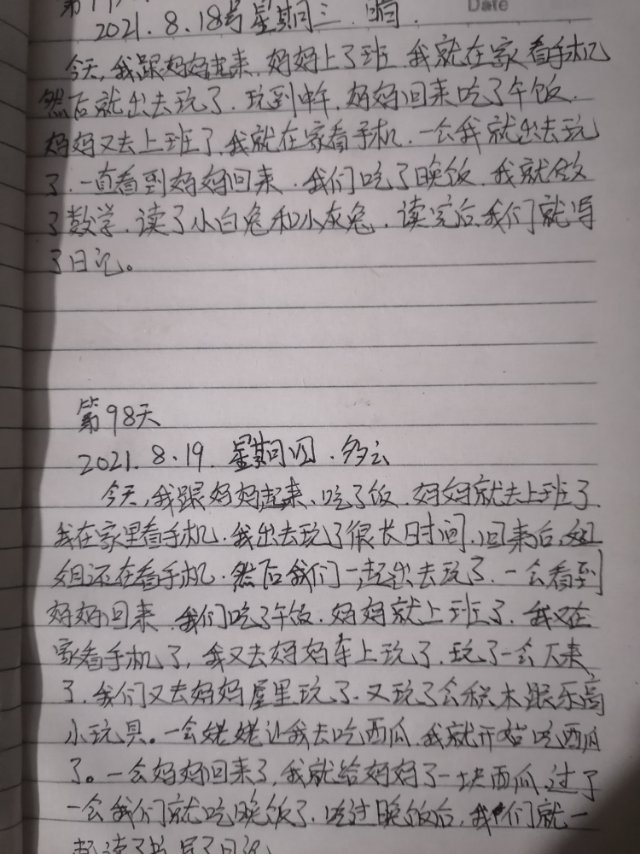 Date
2021.8.18号星期三.晴.
今天,我跟妈妈起来.妈妈上了班.我就在家看手机
然后就出去玩了.玩到中午.妈妈回来吃了午饭.
妈妈又去上班了.我就在家看手机.一会我就出去玩
了.一直看到妈妈回来.我们吃了晚饭.我就做
了数学.读了小白兔和小灰兔.读完后,我们就写
了日记。
第98天
2021.8.19.星期四.多云
今天,我跟妈妈起来.吃了饭.妈妈就去上班了.
我在家里看手机.我出去玩了很长时间.回来后,姐
姐还在看手机.然后我们一起出去玩了.一会看到
妈妈回来.我们吃了午饭.妈妈就上班了.我又在
家看手机了,我又去妈妈车上玩了.玩了一会下来
了.我们又去妈妈屋里玩了.又玩了会积木跟乐高
小玩具。一会姥姥让我去吃西瓜.我就开始吃西瓜
了。一会妈妈回来了,我就给妈妈了一块西瓜.过了
一会我们就吃晚饭了.吃过晚饭后,我们就一
起读了书写了日记